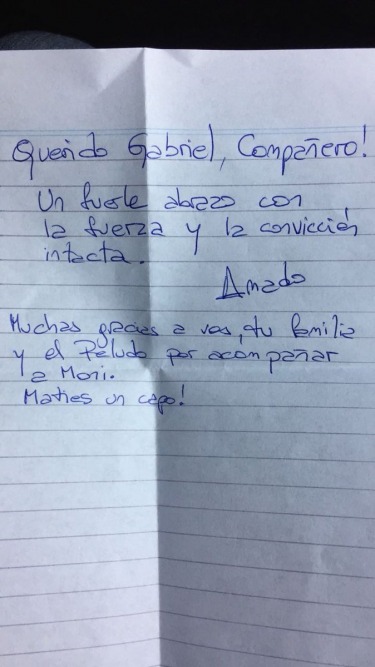 Querido Gabriel, Compañero!
Un fuerte abrazo con
la fuerza y la convicción
intacta.
Amado
Muchas gracias a vos, tu familia
y el Peludo por acompañar
a Moni.
Matias un capo!